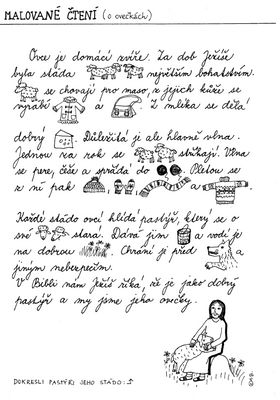 MALOVANÉ ČTENÍ (O OVEČKÁCH)
Ovce je domácí zvíře. Za dob Ježíše
byla stáda největším bohatstvím.
se chovají pro maso, z jejich kůže se
vyrábí a . Z mléka se dělá
dobrý . Důležitá je ale hlavně vlna.
Jednou za rok se stříhají. Vlna
se pere, češe a spřádá do . Pletou se
z ní pak , , a .
Každé stádo ovcí hlídá pastýř, který se o
své stará. Dává jim a vodí je
na dobrou . Chrání je před a
jiným nebezpečím.
V Bibli nám Ježíš říká, že je jako dobrý
pastýř a my jsme jeho ovečky.
DOKRESLI PASTÝŘI JEHO STÁDO: